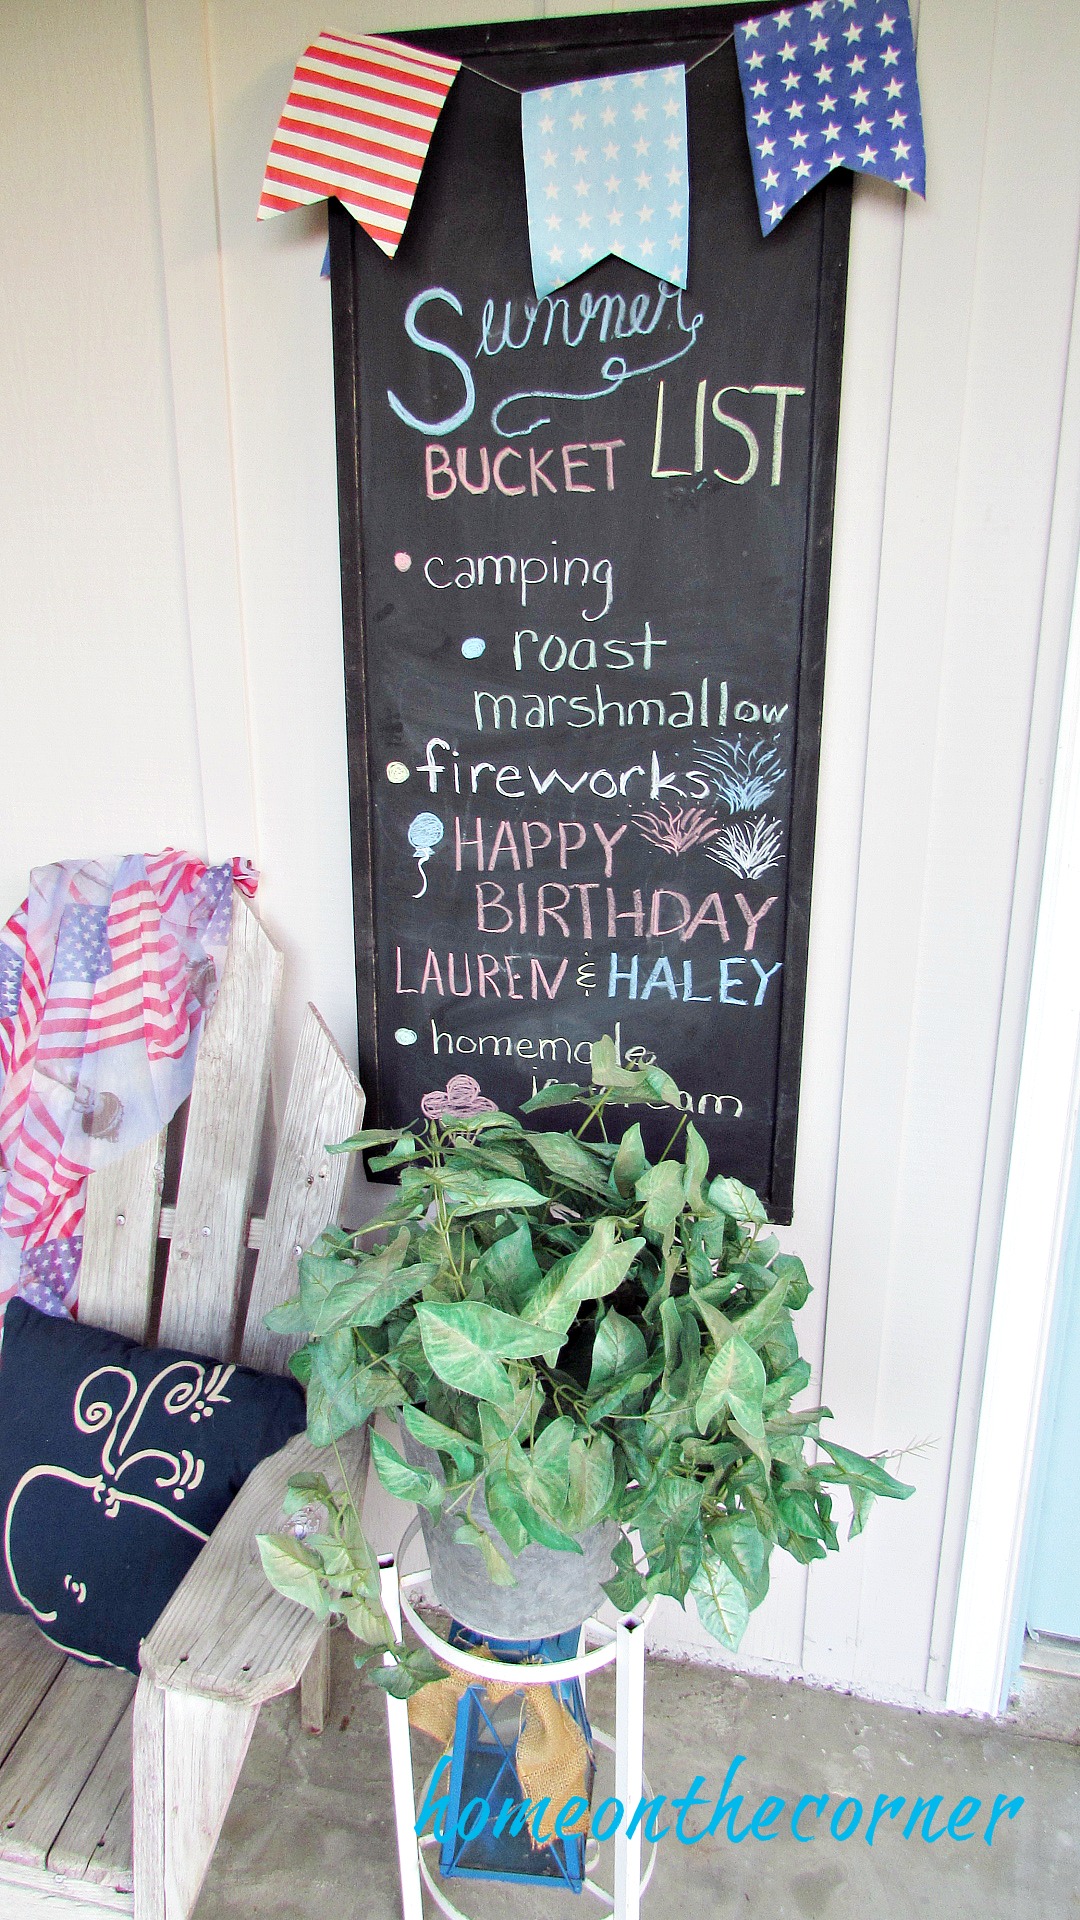 Summer
BUCKET LIST
• camping
• roast
marshmallow
• fireworks
HAPPY
BIRTHDAY
LAUREN & HALEY
• homemade
cream
homeonthecorner